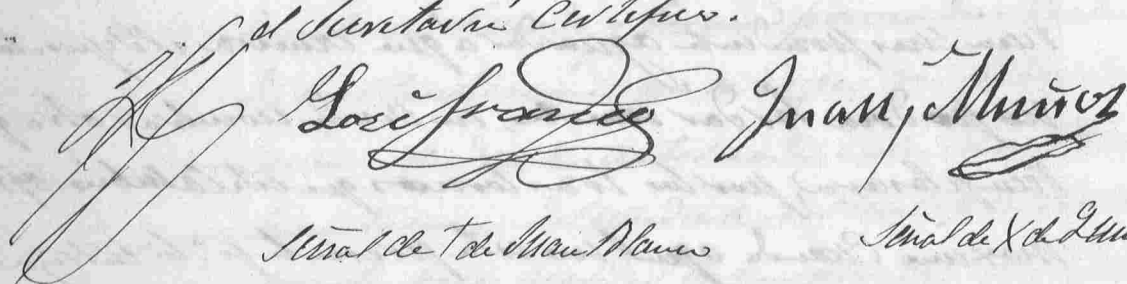 el Secretario Certifico.
José Franco Juan J Muñoz
Señal de † de Juan Blanco Señal de X de